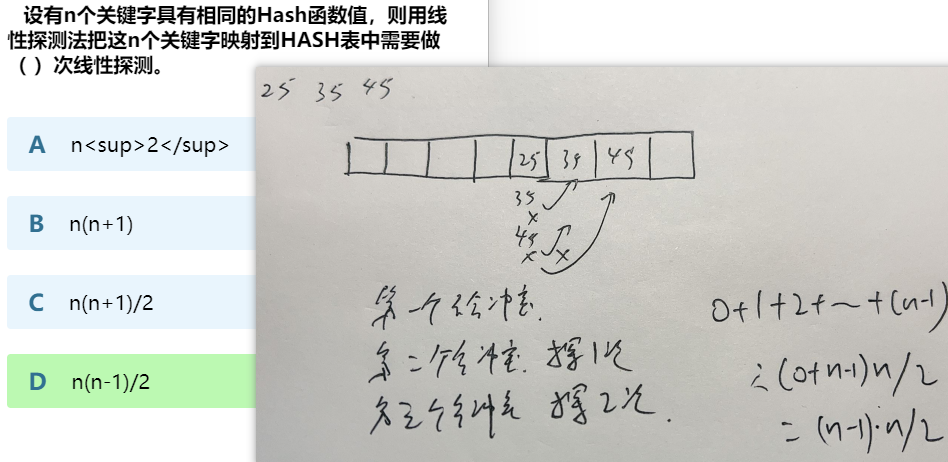 设有n个关键字具有相同的Hash函数值，则用线
性探测法把这n个关键字映射到HASH表中需要做
（ ）次线性探测。
A n<sup>2</sup>
B n(n+1)
C n(n+1)/2
D n(n-1)/2
25 35 45
25 35 45
35
×
45
× ×
第一个不会冲突.
第二个会冲突. 探1次
第三个会冲突 探2次.
0+1+2+~+(n-1)
∴(0+n-1)n/2
=(n-1)·n/2